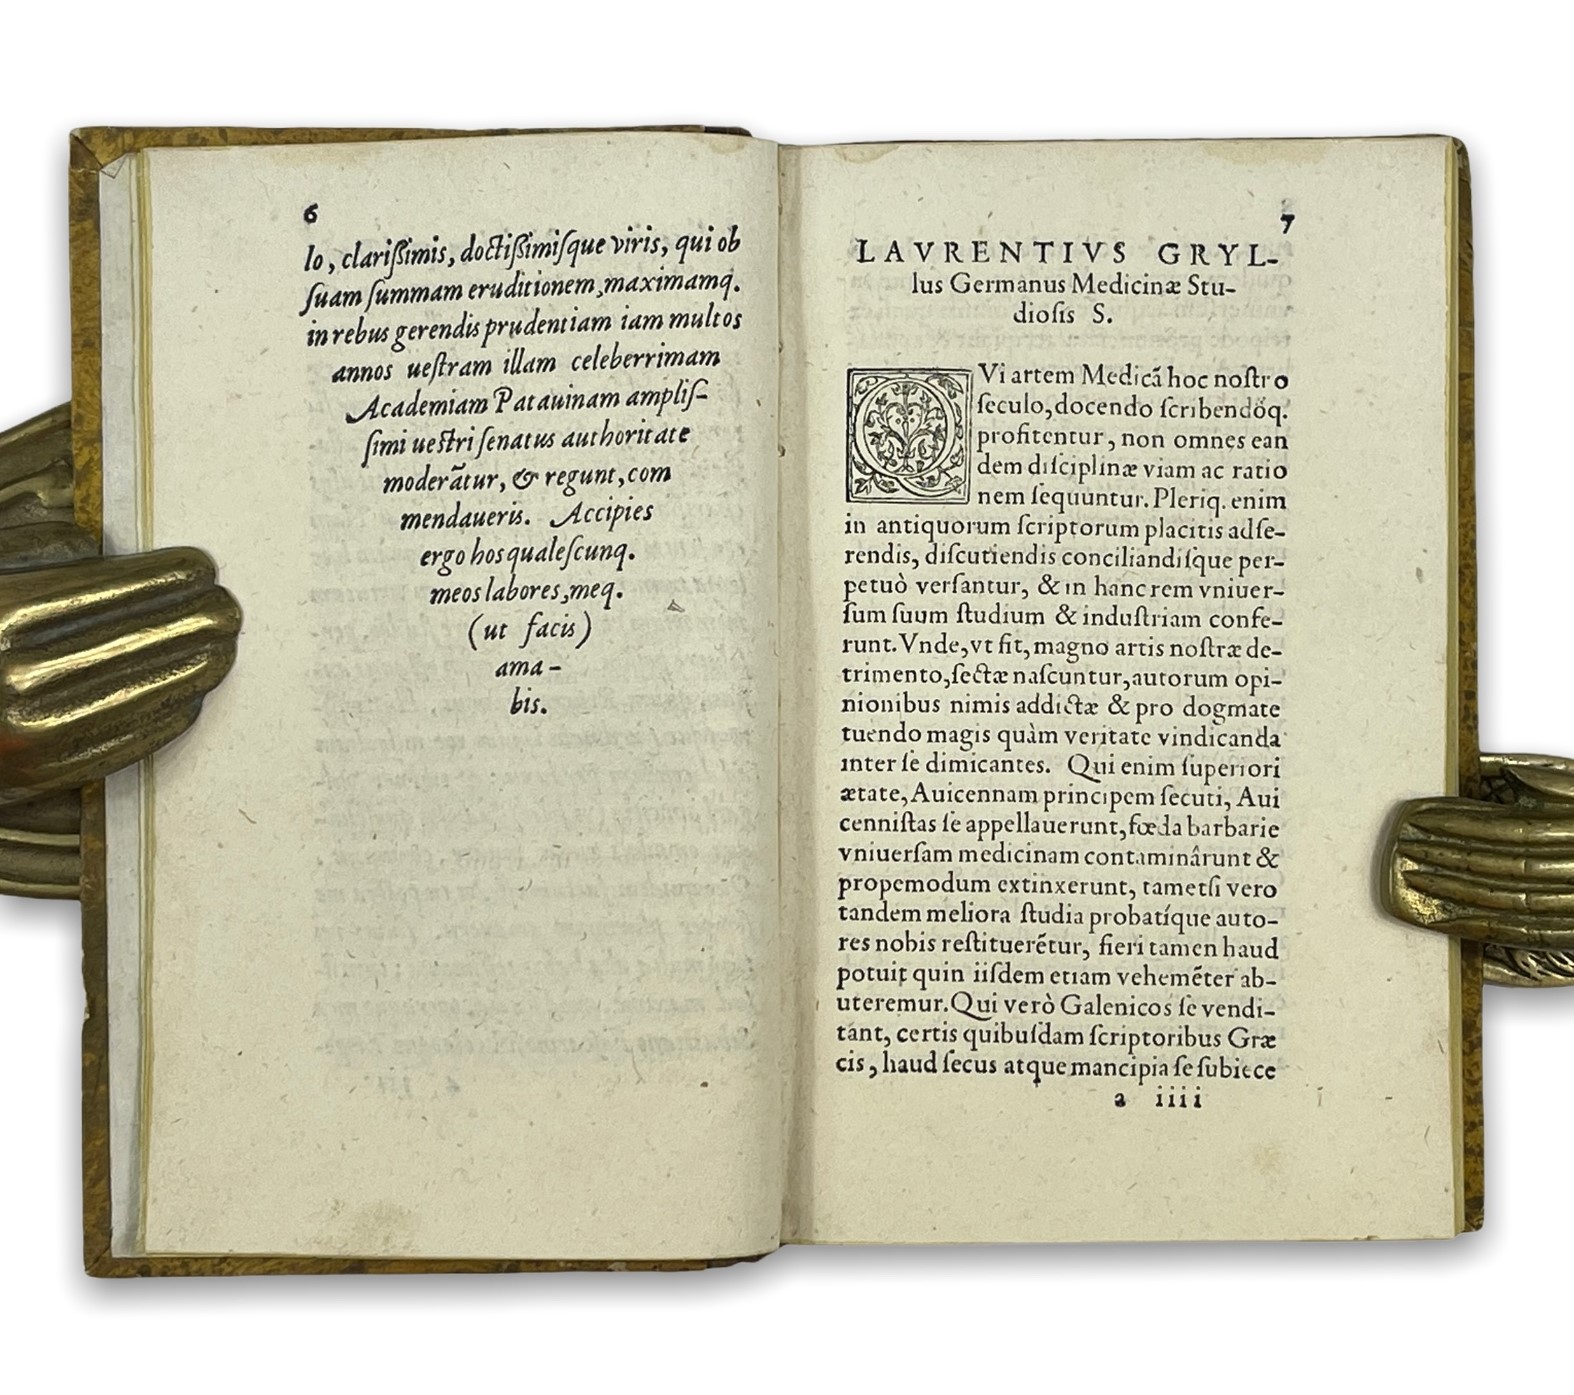 6
lo, clarißimis, doctißimiſque viris, qui ob
ſuam ſummam eruditionem, maximamq.
in rebus gerendis prudentiam iam multos
annos ueſtram illam celeberrimam
Academiam Patauinam ampliſ-
ſimi ueſtri ſenatus authoritate
moderãtur, & regunt, com
mendaueris. Accipies
ergo hos qualeſcunq.
meos labores, meq.
(ut facis)
ama-
bis.
7
LAVRENTIVS GRYL-
lus Germanus Medicinæ Stu-
dioſis S.
QVi artem Medicã hoc noſtro
ſeculo, docendo ſcribendóq.
profitentur, non omnes ean
dem diſciplinæ viam ac ratio
nem ſequuntur. Pleriq. enim
in antiquorum ſcriptorum placitis adſe-
rendis, diſcutiendis conciliandiſque per-
petuò verſantur, & in hanc rem vniuer-
ſum ſuum ſtudium & induſtriam confe-
runt. Vnde, vt fit, magno artis noſtræ de-
trimento, ſectæ naſcuntur, autorum opi-
nionibus nimis addictæ & pro dogmate
tuendo magis quàm veritate vindicanda
inter ſe dimicantes. Qui enim ſuperiori
ætate, Auicennam principem ſecuti, Aui
cenniſtas ſe appellauerunt, fœda barbarie
vniuerſam medicinam contaminârunt &
propemodum extinxerunt, tametſi vero
tandem meliora ſtudia probatíque auto-
res nobis reſtituerẽtur, fieri tamen haud
potuit quin iiſdem etiam vehemẽter ab-
uteremur. Qui verò Galenicos ſe vendi-
tant, certis quibuſdam ſcriptoribus Græ
cis, haud ſecus atque mancipia ſe ſubiece
a iiii